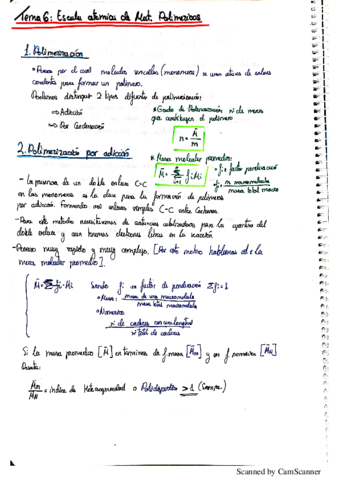 Tema 6: Escala atómica de Mat. Poliméricos
1. Polimerización
Proceso por el cual moléculas sencillas (monómeros) se unen a través de enlaces
covalentes para formar un polímero.
Podemos distinguir 2 tipos de polimerización:
⇒ Adición
⇒ Por Condensación
* Grado de Polimerización: nº de meros
que constituyen el polímero
n = M̄ / m
2. Polimerización por adición
* Masa molecular promedio:
M̄ = Σ fi·Mi
fi: factor ponderación
- La presencia de un doble enlace C-C
en los monómeros es la clave para la formación de polímeros
por adición. Formando así enlaces simples C-C entre
- Para este método necesitaremos de catalizadores para la apertura del
doble enlace y que tenemos electrones libres en la reacción.
- Proceso muy rápido y muy complejo. [Por este motivo hablamos de la
masa molecular promedio].
M̄ = Σ fi·Mi Siendo fi un factor de ponderación Σfi = 1
* Masa: masa de una macromolécula / masa total macromolécula
* Número:
nº de cadenas con una longitud / nº total de cadenas
Si la masa promedio [M̄] en términos de f masa [M̄m] y en f numérica [M̄N]
M̄m / M̄N = índice de Heterogeneidad o Polidispersión > 1 (Siempre)
Scanned by CamScanner